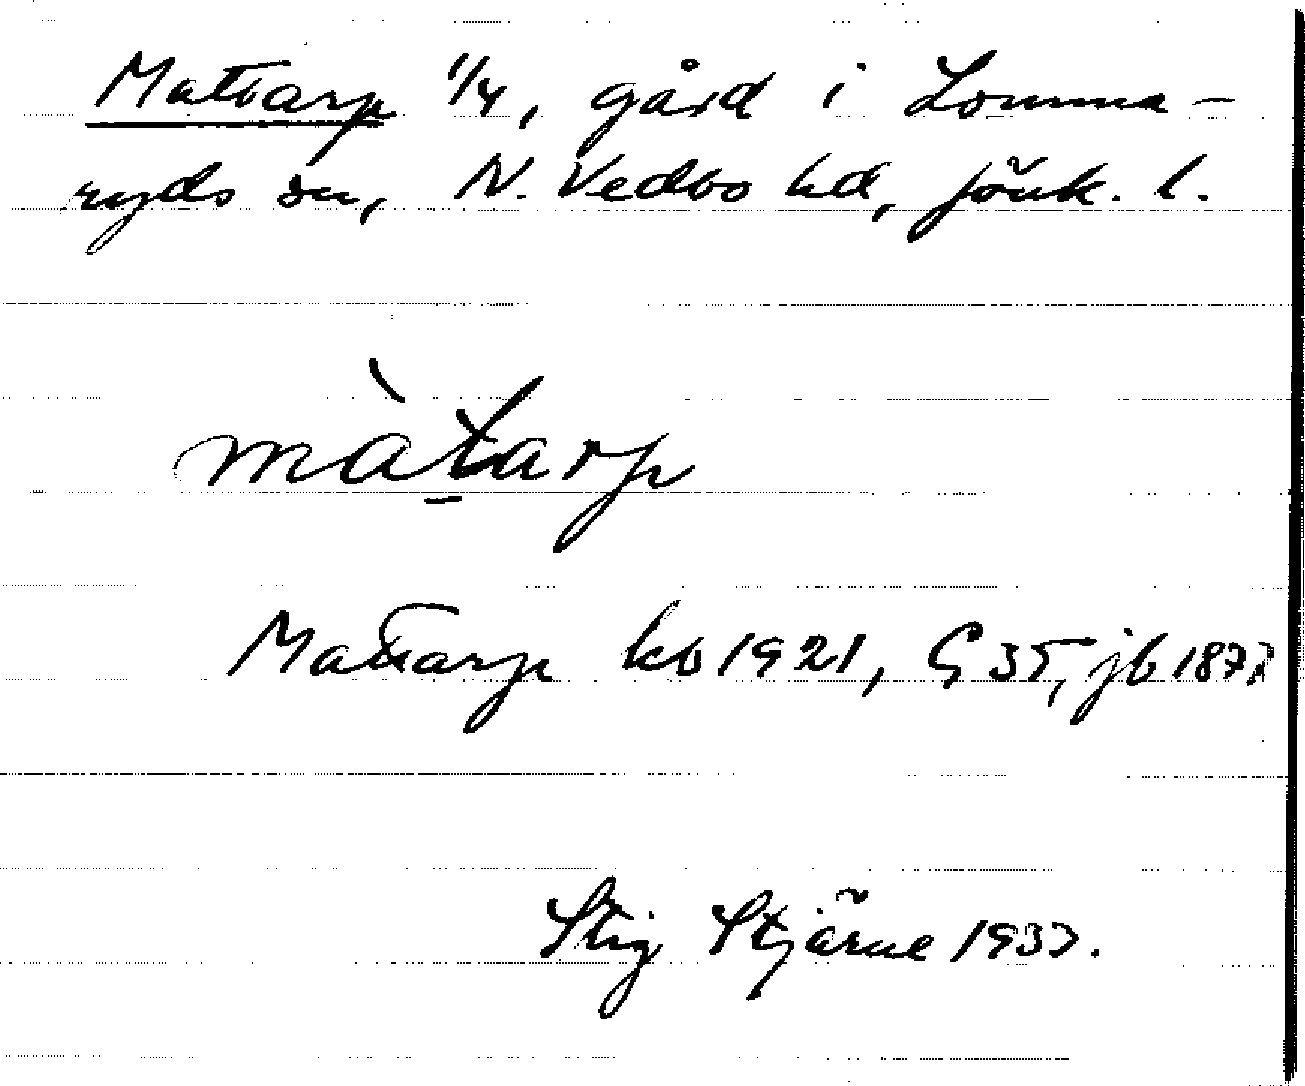 Mattarp 1/4, gård i Lomma-
ryds sn, N. Vedbo hd, Jönk. l.
màt̲arp
Mattarp kb 1921, G 35, jb 1877
Stig Stjärne 1937.